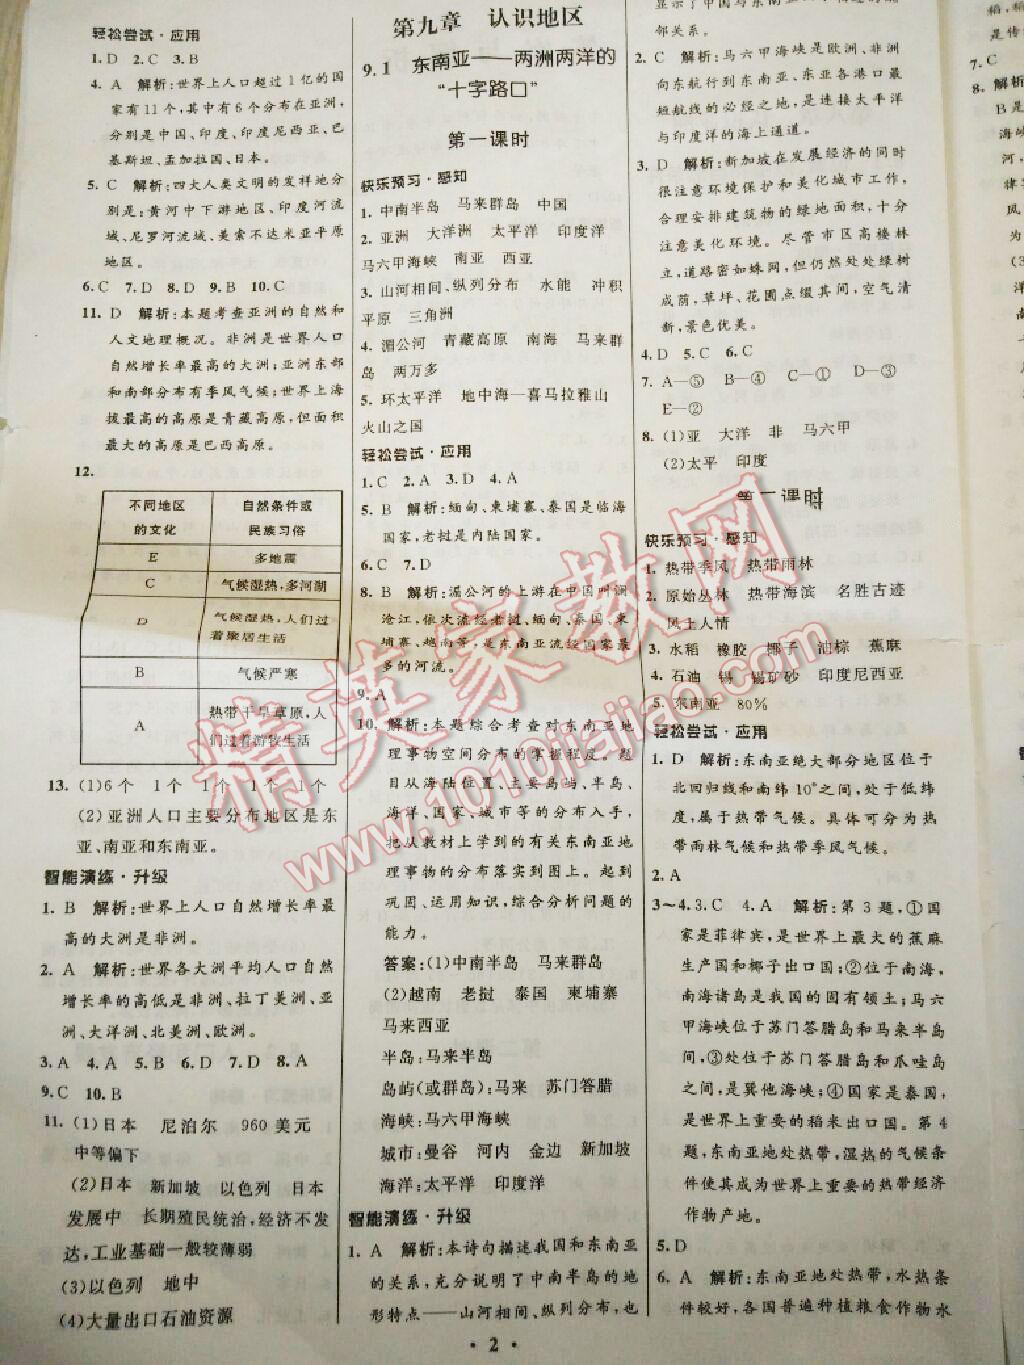 轻松尝试·应用
1. D  2. C  3. B
4. A  解析:世界上人口超过1亿的国
家有11个,其中有6个分布在亚洲,
分别是中国、印度、印度尼西亚、巴
基斯坦、孟加拉国、日本。
5. C  解析:四大人类文明的发祥地分
别是:黄河中下游地区、印度河流
域、尼罗河流域、美索不达米亚平原
地区。
6. C  7. D  8. D  9. B  10. C
11. D  解析:本题考查亚洲的自然和
人文地理概况。非洲是世界人口
自然增长率最高的大洲;亚洲东部
和南部分布有季风气候;世界上海
拔最高的高原是青藏高原,但面积
最大的高原是巴西高原。
12.
不同地区的文化  自然条件或民族习俗
E  多地震
C  气候湿热,多河湖
D  气候湿热,人们过着聚居生活
B  气候严寒
A  热带干旱草原,人们过着游牧生活
13. (1)6个  1个  1个  1个  1个
(2)亚洲人口主要分布地区是东
亚、南亚和东南亚。
智能演练·升级
1. B  解析:世界上人口自然增长率最
高的大洲是非洲。
2. A  解析:世界各大洲平均人口自然
增长率的高低是非洲、拉丁美洲、亚
洲、大洋洲、北美洲、欧洲。
3. A  4. A  5. D  6. B  7. D  8. A
9. C  10. B
11. (1)日本  尼泊尔  960美元
中等偏下
(2)日本  新加坡  以色列  日本
发展中  长期殖民统治,经济不发
达,工业基础一般较薄弱
(3)以色列  地中
(4)大量出口石油资源
第九章  认识地区
9.1  东南亚——两洲两洋的
“十字路口”
第一课时
快乐预习·感知
1. 中南半岛  马来群岛  中国
2. 亚洲  大洋洲  太平洋  印度洋
马六甲海峡  南亚  西亚
3. 山河相间、纵列分布  水能  冲积
平原  三角洲
4. 湄公河  青藏高原  南海  马来群
岛  两万多
5. 环太平洋  地中海—喜马拉雅山
火山之国
轻松尝试·应用
1. C  2. A  3. D  4. A
5. B  解析:缅甸、柬埔寨、泰国是临海
国家,老挝是内陆国家。
6. C  7. D
8. B  解析:湄公河的上游在中国叫澜
沧江,依次流经老挝、缅甸、泰国、柬
埔寨、越南等,是东南亚流经国家最
多的河流。
9. A
10. 解析:本题综合考查对东南亚地
理事物空间分布的掌握程度。题
目从海陆位置、主要岛屿、半岛、
海洋、国家、城市等的分布入手,
把从教材上学到的有关东南亚地
理事物的分布落实到图上。起到
巩固、运用知识,综合分析问题的
能力。
答案:(1)中南半岛  马来群岛
(2)越南  老挝  泰国  柬埔寨
马来西亚
半岛:马来半岛
岛屿(或群岛):马来  苏门答腊
海峡:马六甲海峡
城市:曼谷  河内  金边  新加坡
海洋:太平洋  印度洋
智能演练·升级
1. A  解析:本诗句描述我国和东南亚
的关系,充分说明了中南半岛的地
形特点——山河相间、纵列分布,也
显示了中国与东南亚
邻关系。
2. C  解析:马六甲海峡是欧洲、非洲
向东航行到东南亚、东亚各港口最
短航线的必经之地,是连接太平洋
与印度洋的海上通道。
3. D  解析:新加坡在发展经济的同时
很注意环境保护和美化城市工作,
合理安排建筑物的绿地面积,十分
注意美化环境。尽管市区高楼林
立,道路密如蛛网,但仍然处处绿树
成荫,草坪、花圃点缀其间,空气清
新,景色优美。
4. D  5. C  6. C
7. A—⑤  B—④  C—①  D—③
E—②
8. (1)亚  大洋  非  马六甲
(2)太平  印度
课时
快乐预习·感知
1. 热带季风  热带雨林
2. 原始丛林  热带海滨  名胜古迹
风土人情
3. 水稻  橡胶  椰子  油棕  蕉麻
4. 石油  锡  锡矿砂  印度尼西亚
5. 东南亚  80%
轻松尝试·应用
1. D  解析:东南亚绝大部分地区位于
北回归线和南纬10°之间,处于低纬
度,属于热带气候。具体可分为热
带雨林气候和热带季风气候。
2. A
3~4. 3. C  4. A  解析:第3题,①国
家是菲律宾,是世界上最大的蕉麻
生产国和椰子出口国;②位于南海,
南海诸岛是我国的固有领土;马六
甲海峡位于苏门答腊岛和马来半岛
之间,③处位于苏门答腊岛和爪哇岛
之间,是巽他海峡;④国家是泰国,
是世界上重要的稻米出口国。第4
题,东南亚地处热带,湿热的气候条
件使其成为世界上重要的热带经济
作物产地。
5. D
6. A  解析:东南亚地处热带,水热条
件较好,各国普遍种植粮食作物水
7. C
8. 解析
B是
精英家教网
www.1010jiajiao.com
· 2 ·